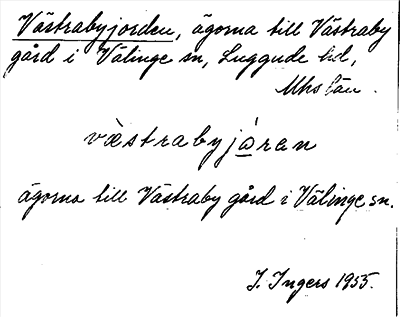 Västrabyjorden, ägorna till Västraby
gård i Välinge sn, Luggude hd,
Mhs län.
væ̀strabyjo̱ran
ägorna till Västraby gård i Välinge sn.
I. Ingers 1955.